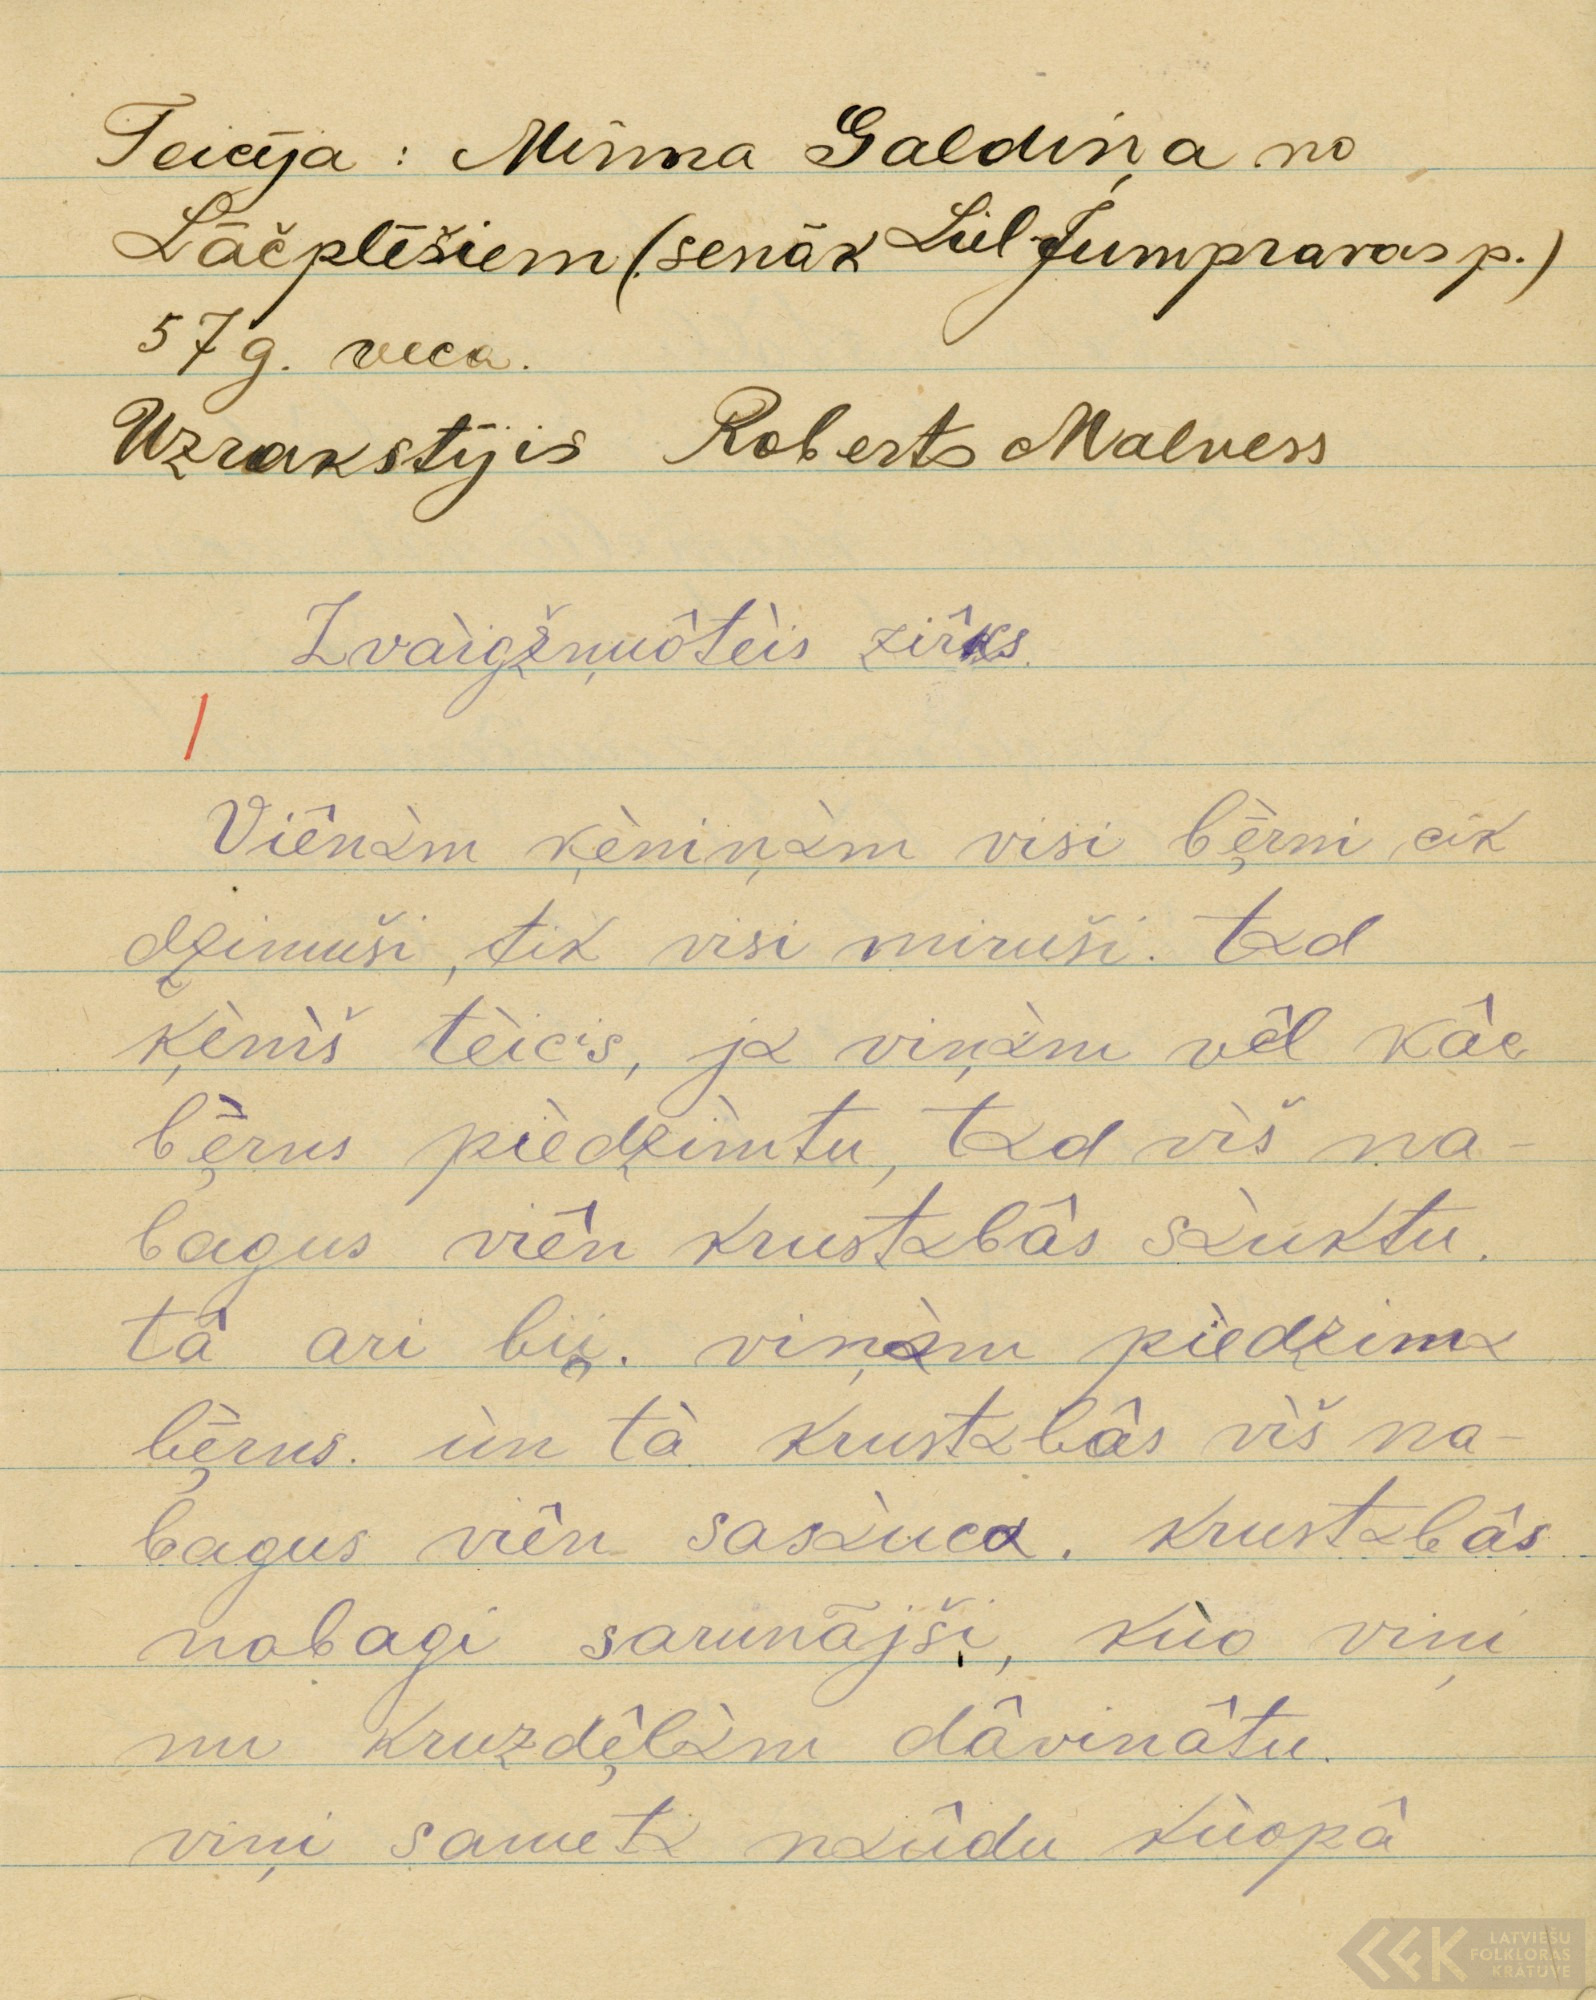 Teicēja: Minna Galdiņa no
Lāčplēšiem (senāk Liel-Jumpravas p.)
57 g. veca.
Uzrakstījis Roberts Malvess
Zvàigžņuôtèis zir̂ks.
1
Viênɑ̀m ķèniņɑ̀m visi bę̄̀rni, cik
dzimuši, tik visi miruši. tɑd
ķèniš tèicis, jɑ viņɑ̀m vêl kâc
bę̄̀rns pìedzìmtu, tɑd vìš na-
bagus viên krustɑbâs sɑ̀uktu.
tâ ari bij. viņɑ̀m pìedzimɑ
bę̄̀rns. ùn tà krustɑbâs vìš na-
bagus viên sasɑ̀ucɑ. krustɑbâs
nabagi sarunājši, kùo viņi
nu kruzdę̂lɑ̀m dâvinâtu.
viņi sametɑ nɑûdu kùopâ
LATVIEŠU
FOLKLORAS
KRĀTUVE